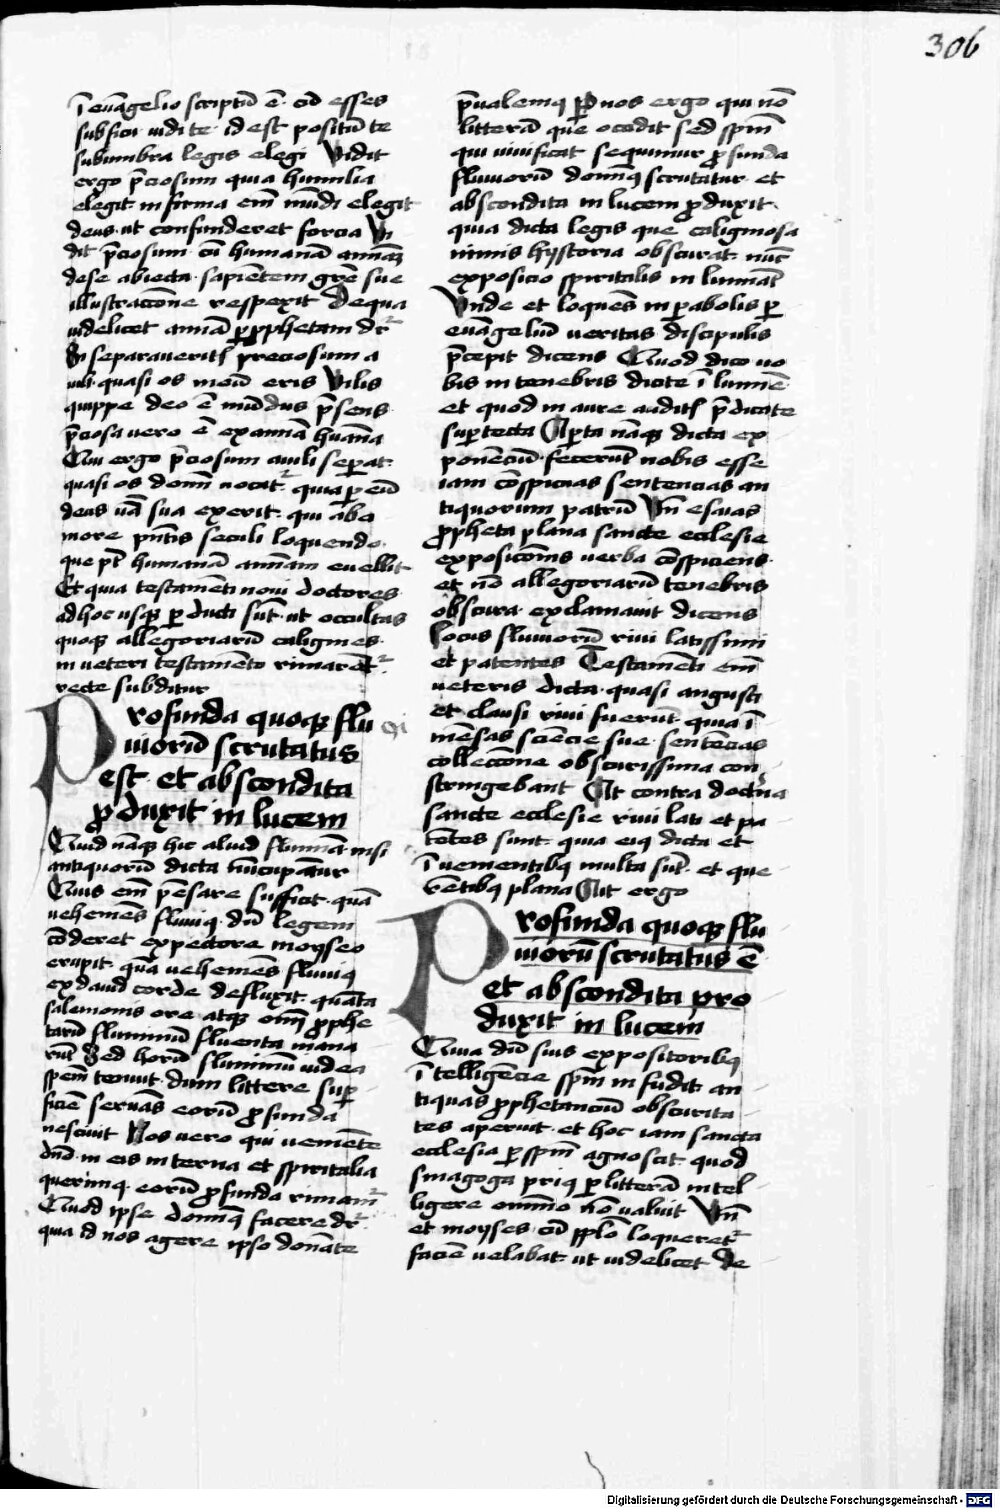 306
i euāgelio scriptū ē cū esses
sub ficu vidi te id est positū te
sub umbra legis elegi Vidit
ergo p̄ciosum quia humilia
elegit infirma em̄ mūdi elegit
deus ut confunderet forcia Vi
dit p̄ciosum cū humanā animā
de se abiecta sapiētem gr̄e sue
illustracōne respexit De qua
videlicet animā per pphetam dr̄
Si separaveritis preciosum a
vili quasi os meū eris Vilis
quippe deo ē mūdus p̄sens
p̄ciosa vero ē ex animā huāna
Qui ergo p̄ciosum a vili sep̄at
quasi os domī vocat̄ quia p eū
deus v̄ba sua exerit qui ab a
more p̄ntis seculi loquendo
que pt̄ humanā animam evellit
Et quia testamēti novi doctores
ad hoc usqꝫ perducti sūt ut occultas
quoqꝫ allegoriarū caligines
in veteri testamēto rimaret̄
recte subditur
Profunda quoqꝫ flu
viorū scrutatus
est et abscondita
produxit in lucem
Quid nāqꝫ hic aliud flumīa nisi
antiquorū dicta nūcupātur
Quis em̄ pēsare sufficit quā
vehemēs fluviꝰ dū legem
cōderet ex pectore moyseo
erupit quā vehemēs fluviꝰ
ex david corde defluxit quāta
salemonis ore atqꝫ om̄i prophe
tarū fluminū fluenta mana
rūt Sed horū fluminū iudea
spem tenuit dum littere sup
ficiē servās eorū profunda
nescivit Nos vero qui veniēte
dn̄o in eis interna et spiritalia
querimꝰ eorū profunda rimam̄
Quod ipse dominꝰ facere dr̄
quia id nos agere ipso donāte
p̄valemꝰ per nos ergo qui nō
litterā que occidit sed spm̄
qui vivificat sequimur profunda
fluviorū dominꝰ scrutatur et
abscondita in lucem produxit
quia dicta legis que caliginosa
nimis hystoria obscurat nūc
exposicio spiritalis in luminat
Unde et loquēs in parabolis per
euāgeliū veritas discipulis
p̄cepit dicens Quod dico vo
bis in tenebris dicite ī lumīe
et quod in aure auditis p̄dicate
super tecta Aperta nāqꝫ dicta ex
ponenciū fecerūt nobis esse
iam cōspicuas sentencias an
tiquorum patrū Vn̄ esaias
propheta plana sancte ecclesie
exposicōnis verba cōspiciens
et nō allegoriarū tenebris
obscura exclamavit dicens
Locus fluviorū rivi latissimi
et patentes Testamēti em̄
veteris dicta quasi angusti
et clausi rivi fuerūt quia ī
mēsas sciēcie sue sentēcias
colleccōne obscurissima con
stringebant At contra doctrina
sancte ecclesie rivi lati et pa
tētes sunt quia eiꝰ dicta et
ī venientibꝰ multa sūt et que
rētibꝰ plana Ait ergo
Profunda quoqꝫ flu
viorū scrutatus ē
et abscondita pro
duxit in lucem
Quia dū suis expositoribꝰ
ītelligēcie spm̄ infudit an
tiquas prophetanciū obscurita
tes aperuit et hoc iam sancta
ecclesia per spm̄ agnoscit quod
sinagoga priꝰ per litterā intel
ligere omnīo nō valuit Vn̄
et moyses cū pplo loqueret̄
faciē velabat ut videlicet de
Digitalisierung gefördert durch die Deutsche Forschungsgemeinschaft - DFG